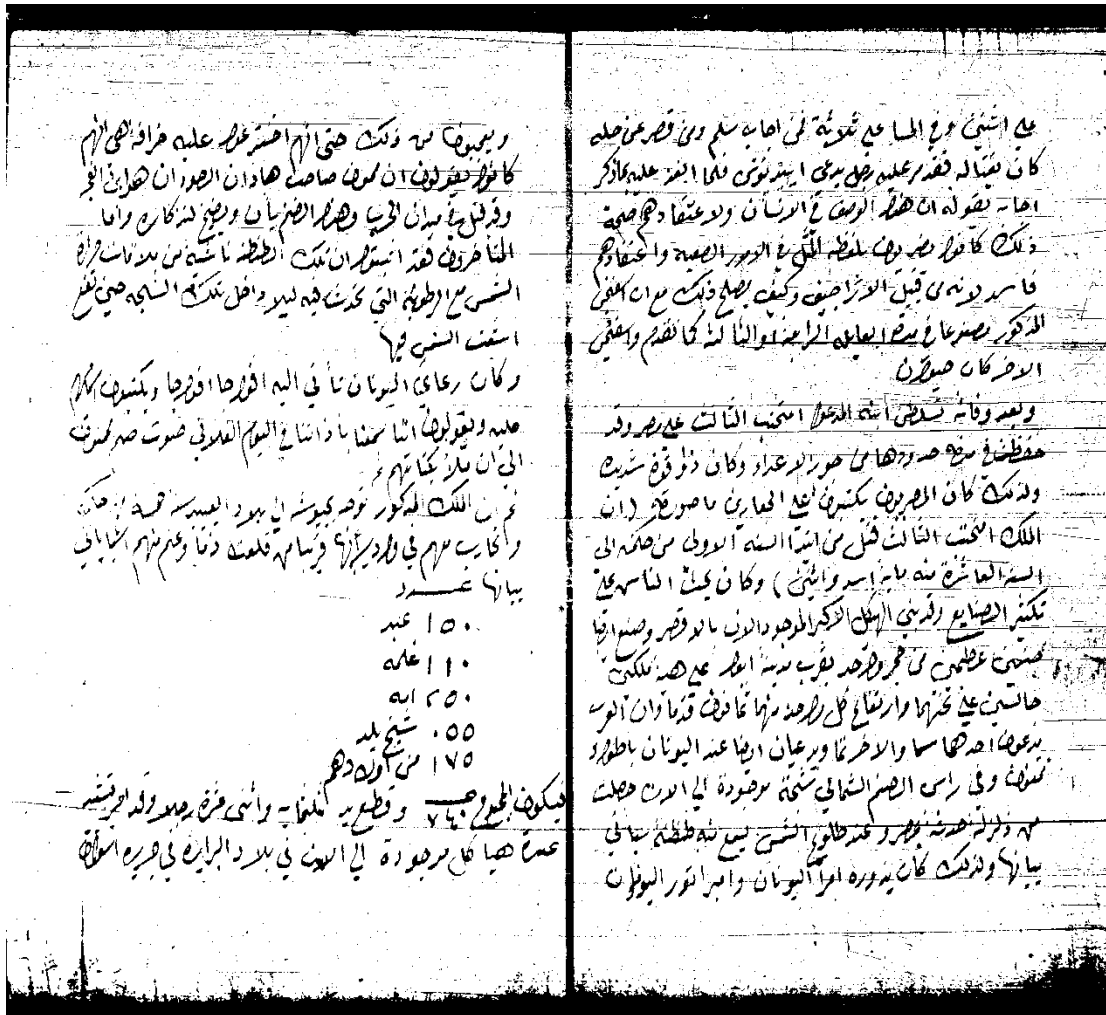 على اثنين وفي المسا على ثلاثة فمن اجاب سلم ومن قصر عن حله
كان يقتاله فقدم عليه رجل يدعى ايبذنوش فلما الغز عليه بما ذكر
اجابه بقوله ان هذا الوصف في الانسان ولاعتقادهم صحة
ذلك كانوا يضربون بلفظة المثل في الامور الصعبة واعتقادهم
فاسد لانه من قبيل الاراجيف وكيف يصلح ذلك مع ان
المذكور مصنوعا في مدة العايله الرابعة او الثالثة كما تقدم
الاخر كان حيوان
وبعد وفاته تسلطن ابنه المدعو امنحتب الثالث على مصر وقد
حفظت في مدته حدودها من جور الاعداء وكان ذو قوة شديدة
ولذلك كان المصريون يكتبون على الجعارين ما صورته (ان
الملك امنحتب الثالث قتل من ابتدا السنه الاولى من حكمه الى
السنة العاشرة منه ماية اسد واثنين) وكان يحث الناس على
تكثير الصنايع وقد بنى الهيكل الاكبر الموجود الان بالاقصر وصنع ايضا
صنمين عظيمين من حجر واحد بقرب مدينة ابو على هيئة ملكين
جالسين على تختهما وارتفاع كل واحد منهما ثمانون قدما وان العرب
يدعون احدهما سما والاخر تما ويدعيان ايضا عند اليونان باطواد
ممنون وفي راس الصنم الشمالي فتحة موجودة الى الان حصلت
من زلزلة حدثت بمصر وعند طلوع الشمس يسمع منه طنطنة سياتي
بيانها ولذلك كان يزوره امرا اليونان وامبراتور اليونان
ويعجبون من ذلك حتى انهم اخترعوا عليه خرافة هي انهم
كانوا يقولون ان ممنون صاحب هاذان الصوران هو ابن الفجر
وقد قتل في ميدان الحرب وهذا الصنم يأن ويصيح لتذكاره واما
المتأخرون فقد اثبتوا ان تلك الطنطنة ناشئة من ملاقات حرارة
الشمس مع الرطوبة التي تحدث فيه ليلا داخل تلك الفتحه حين تقع
اشعت الشمس فيها
وكان رعاي اليونان تأتي اليه افواجا افواجا ويكتبون
عليه ويقولون اننا سمعنا باذاننا في اليوم الفلاني صوت صنم ممنون
الى ان ملا بكتاباتهم
ثم ان الملك المذكور توجه بجيوشه الى بلاد العبيد سنة خمسة من حكمه
وتحارب معهم في قريبا من قلعت وغنم منهم
بيانها عــدد
١٥٠ عبد
١١٠ غلمه
٢٥٠ ابه
٠٥٥ شيخ بلد
١٧٥ من اولادهم
فيكون المجموع ٧٤٠ وقطع يد ثلثمايه واثنى عشرة رجلا وقد
عدة هياكل موجودة الى الان في بلاد البرابرة في جزيرة اسوان